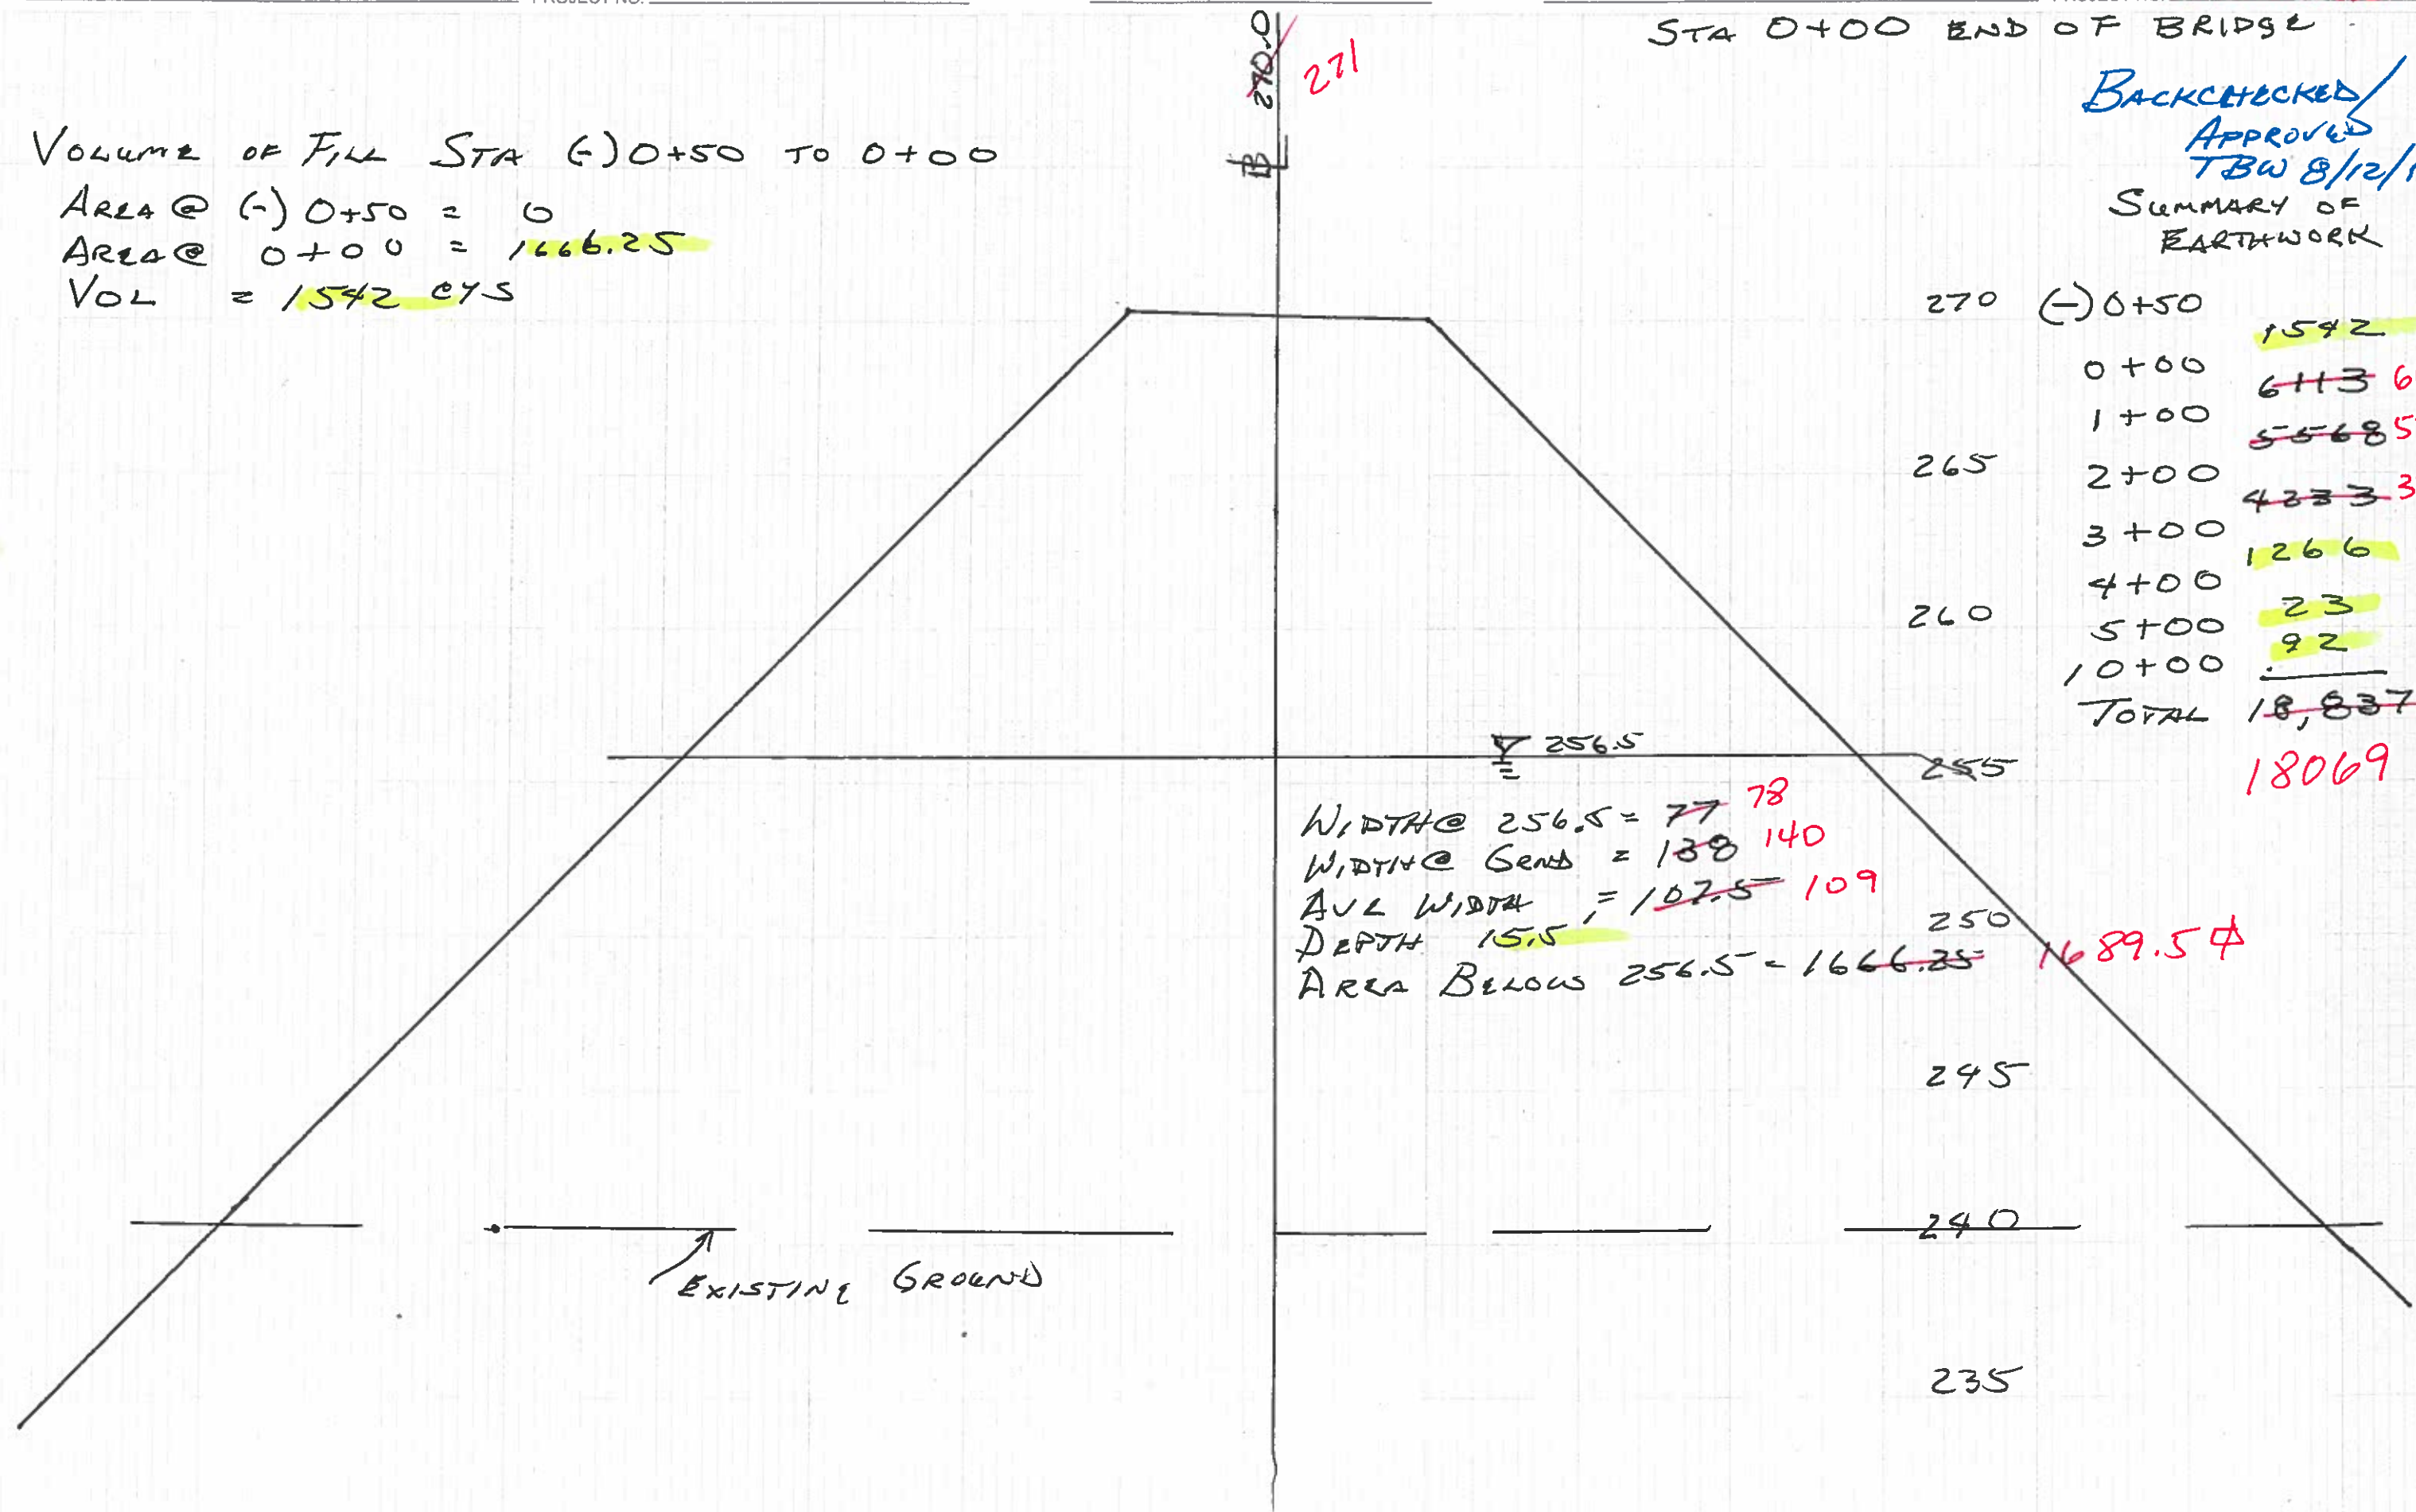 PROJECT NO.
STA 0+00 END OF BRIDGE
270.0
271
BACKCHECKED/
APPROVED
TBW 8/12/
VOLUME OF FILL STA (-) 0+50 TO 0+00
AREA @ (-) 0+50 = 0
AREA @ 0+00 = 1666.25
VOL = 1542 CYS
SUMMARY OF
EARTHWORK
270
265
260
255
250
245
240
235
(-) 0+50
1542
0+00
6113 6
1+00
5568 5
2+00
4233 3
3+00
1266
4+00
23
5+00
92
10+00
TOTAL 18,837
18069
256.5
WIDTH @ 256.5 = 77 78
WIDTH @ GRND = 138 140
AVE WIDTH = 107.5 109
DEPTH 15.5
AREA BELOW 256.5 = 1666.25 1689.5
EXISTING GROUND